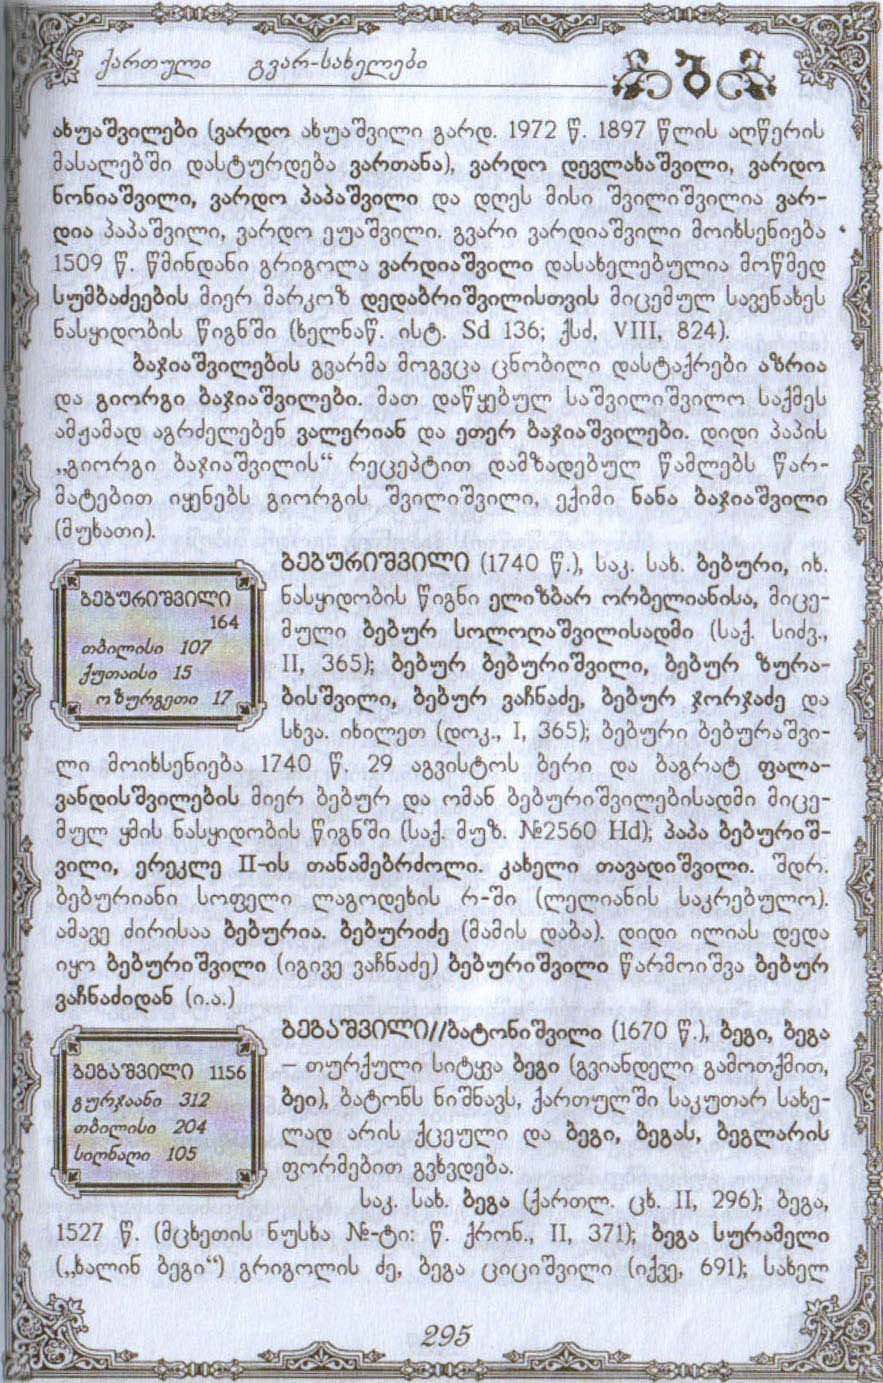 ქართული გვარ-სახელები
ახუაშვილები (ვარდო ახუაშვილი გარდ. 1972 წ. 1897 წლის აღწერის
მასალებში დასტურდება ვართანა), ვარდო დევლახაშვილი, ვარდო
ნონიაშვილი, ვარდო პაპაშვილი და დღეს მისი შვილიშვილია ვარ-
დია პაპაშვილი, ვარდო ეუაშვილი. გვარი ვარდიაშვილი მოიხსენიება
1509 წ. წმინდანი გრიგოლა ვარდიაშვილი დასახელებულია მოწმედ
სუმბაძეების მიერ მარკოზ დედაბრიშვილისთვის მიცემულ სავენახეს
ნასყიდობის წიგნში (ხელნაწ. ისტ. Sd 136; ქსძ, VIII, 824).
ბაჯიაშვილების გვარმა მოგვცა ცნობილი დასტაქრები აზრია
და გიორგი ბაჯიაშვილები. მათ დაწყებულ საშვილიშვილო საქმეს
ამჟამად აგრძელებენ ვალერიან და ეთერ ბაჯიაშვილები. დიდი პაპის
„გიორგი ბაჯიაშვილის“ რეცეპტით დამზადებულ წამლებს წარ-
მატებით იყენებს გიორგის შვილიშვილი, ექიმი ნანა ბაჯიაშვილი
(მუხათი).
ბებურიშვილი
164
თბილისი 107
ქუთაისი 15
ოზურგეთი 17
ბებურიშვილი (1740 წ.), საკ. სახ. ბებური, იხ.
ნასყიდობის წიგნი ელიზბარ ორბელიანისა, მიცე-
მული ბებურ სოლოღაშვილისადმი (საქ. სიძვ.,
II, 365); ბებურ ბებურიშვილი, ბებურ ზურა-
ბისშვილი, ბებურ ვაჩნაძე, ბებურ ჯორჯაძე და
სხვა. იხილეთ (დოკ., I, 365); ბებური ბებურაშვი-
ლი მოიხსენიება 1740 წ. 29 აგვისტოს ბერი და ბაგრატ ფალა-
ვანდისშვილების მიერ ბებურ და ომან ბებურიშვილებისადმი მიცე-
მულ ყმის ნასყიდობის წიგნში (საქ. მუზ. №2560 Hd); პაპა ბებურიშ-
ვილი, ერეკლე II-ის თანამებრძოლი. კახელი თავადიშვილი. შდრ.
ბებურიანი სოფელი ლაგოდეხის რ-ში (ლელიანის საკრებულო).
ამავე ძირისაა ბებურია. ბებურიძე (მამის დაბა). დიდი ილიას დედა
იყო ბებურიშვილი (იგივე ვაჩნაძე) ბებურიშვილი წარმოიშვა ბებურ
ვაჩნაძიდან (ი.ა.)
ბეგაშვილი 1156
გურჯაანი 312
თბილისი 204
სიღნაღი 105
ბეგაშვილი//ბატონიშვილი (1670 წ.), ბეგი, ბეგა
– თურქული სიტყვა ბეგი (გვიანდელი გამოთქმით,
ბეი), ბატონს ნიშნავს, ქართულში საკუთარ სახე-
ლად არის ქცეული და ბეგი, ბეგას, ბეგლარის
ფორმებით გვხვდება.
საკ. სახ. ბეგა (ქართლ. ცხ. II, 296); ბეგა,
1527 წ. (მცხეთის ნუსხა №-ტი: წ. ქრონ., II, 371); ბეგა სურამელი
(„ხალინ ბეგი“) გრიგოლის ძე, ბეგა ციციშვილი (იქვე, 691); სახელ
295